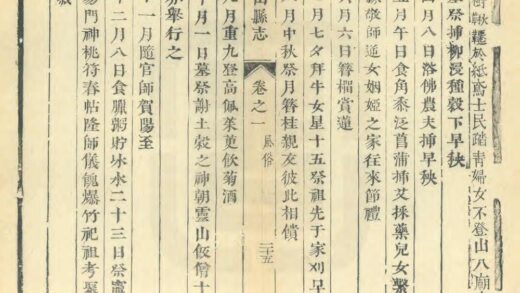 鞦韆放紙鳶士民踏青婦女不登山入廟
墓祭插柳浸種穀下早秧
四月八日浴佛農夫插早秧
五月午日食角黍泛菖蒲插艾採藥兒女繫
敬師逆女姻婭之家往來節禮
六月六日簪榴賞蓮
七月七夕拜牛女星十五祭祖先于家刈早
八月中秋祭月簪桂親友彼此相饋
山縣志 卷之一 風俗 二十五
九月重九登高佩茱萸飲菊酒
十月一日墓祭謝土穀之神朝雲山佞僧十
亦舉行之
十一月隨官師賀陽至
十二月八日食臘粥貯氷水二十三日祭竈
易門神桃符春帖隆師儀餽爆竹祀祖考聚
歲